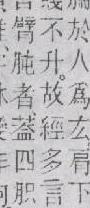 於人爲玄肩下
不升。故經多言
臂肫者蓋四胑